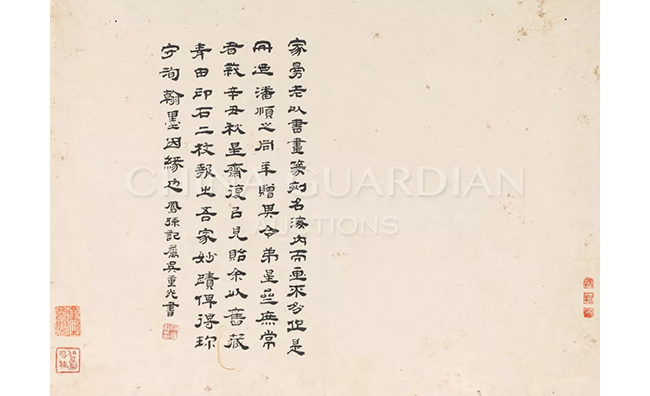 家曼老以書畫篆刻名海内而畫不多作是
冊迺潘順之同年贈其令弟星齋庶常
者歲辛丑秋星齋復以見貽余以舊藏
青田印石二枚報之吾家妙蹟俾得珎
守洵翰墨因緣也 鳳孫記屬吳重光書
CHINA GUARDIAN
AUCTIONS